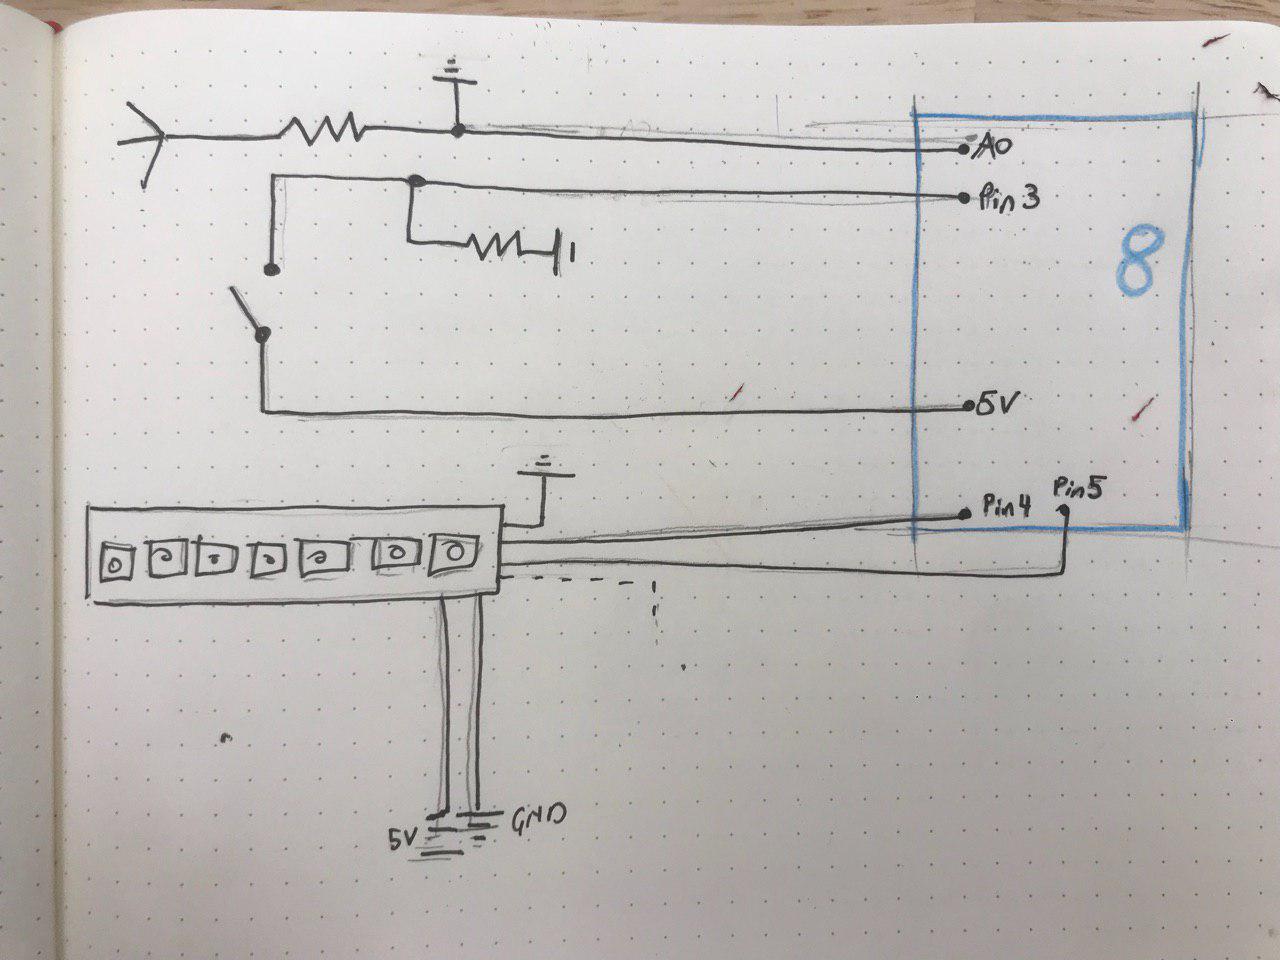 A0
Pin 3
8
5V
Pin 4
Pin 5
5V
GND